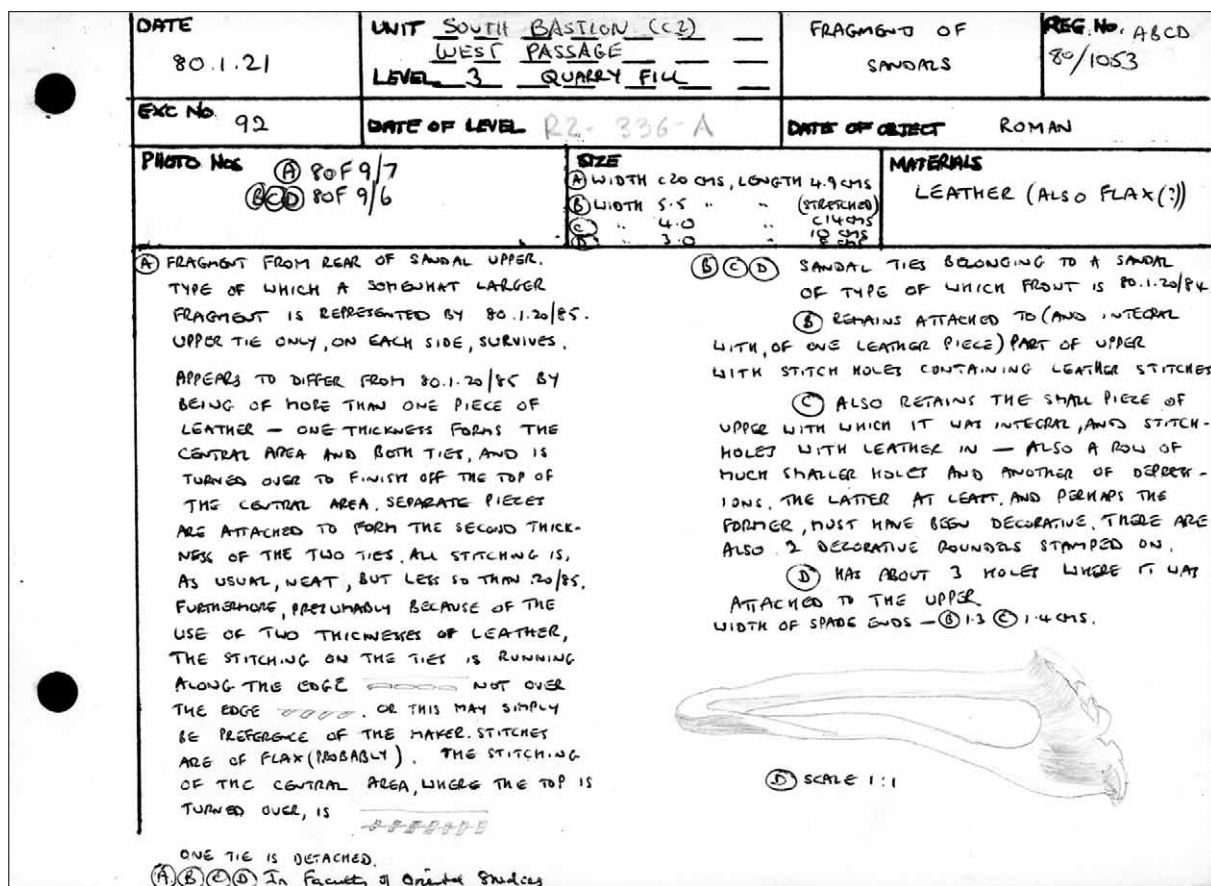 DATE
80.1.21
UNIT SOUTH BASTION (C2)
WEST PASSAGE
LEVEL 3 QUARRY FILL
FRAGMENTS OF
SANDALS
REG. No. ABCD
80/1053
EXC No. 92
DATE OF LEVEL R2-336-A
DATE OF OBJECT ROMAN
PHOTO Nos A 80F 9/7
BCD 80F 9/6
SIZE
A WIDTH C20 CMS, LENGTH 4.9 CMS
B WIDTH 5.5 " " (STRETCHED)
C14 CMS
C " 4.0 " 10 CMS
D " 3.0 "
MATERIALS
LEATHER (ALSO FLAX(?))
A FRAGMENT FROM REAR OF SANDAL UPPER.
TYPE OF WHICH A SOMEWHAT LARGER
FRAGMENT IS REPRESENTED BY 80.1.20/85.
UPPER TIE ONLY, ON EACH SIDE, SURVIVES.
APPEARS TO DIFFER FROM 80.1.20/85 BY
BEING OF MORE THAN ONE PIECE OF
LEATHER — ONE THICKNESS FORMS THE
CENTRAL AREA AND BOTH TIES, AND IS
TURNED OVER TO FINISH OFF THE TOP OF
THE CENTRAL AREA. SEPARATE PIECES
ARE ATTACHED TO FORM THE SECOND THICK-
NESS OF THE TWO TIES. ALL STITCHING IS,
AS USUAL, NEAT, BUT LESS SO THAN .20/85.
FURTHERMORE, PRESUMABLY BECAUSE OF THE
USE OF TWO THICKNESSES OF LEATHER,
THE STITCHING ON THE TIES IS RUNNING
ALONG THE EDGE NOT OVER
THE EDGE . OR THIS MAY SIMPLY
BE PREFERENCE OF THE MAKER. STITCHES
ARE OF FLAX (PROBABLY). THE STITCHING
OF THE CENTRAL AREA, WHERE THE TOP IS
TURNED OVER, IS
ONE TIE IS DETACHED.
A B C D In Faculty of Oriental Studies
B C D SANDAL TIES BELONGING TO A SANDAL
OF TYPE OF WHICH FRONT IS 80.1.20/84.
B REMAINS ATTACHED TO (AND INTEGRAL
WITH, OF ONE LEATHER PIECE) PART OF UPPER
WITH STITCH HOLES CONTAINING LEATHER STITCHES
C ALSO RETAINS THE SMALL PIECE OF
UPPER WITH WHICH IT WAS INTEGRAL, AND STITCH-
HOLES WITH LEATHER IN — ALSO A ROW OF
MUCH SMALLER HOLES AND ANOTHER OF DEPRESS-
IONS. THE LATTER AT LEAST, AND PERHAPS THE
FORMER, MUST HAVE BEEN DECORATIVE. THERE ARE
ALSO 2 DECORATIVE ROUNDELS STAMPED ON.
D HAS ABOUT 3 HOLES WHERE IT WAS
ATTACHED TO THE UPPER
WIDTH OF SPADE ENDS — B 1.3 C 1.4 CMS.
D SCALE 1:1